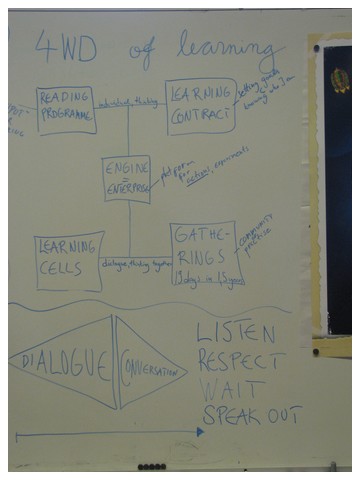 4WD of learning
READING
PROGRAMME
individual, thinking
LEARNING
CONTRACT
setting goals
knowing who I am
ENGINE
=
ENTERPRISE
platform
for actions, experiments
LEARNING
CELLS
dialogue, thinking together
GATHE-
RINGS
community
practice
DIALOGUE
CONVERSATION
LISTEN
RESPECT
WAIT
SPEAK OUT